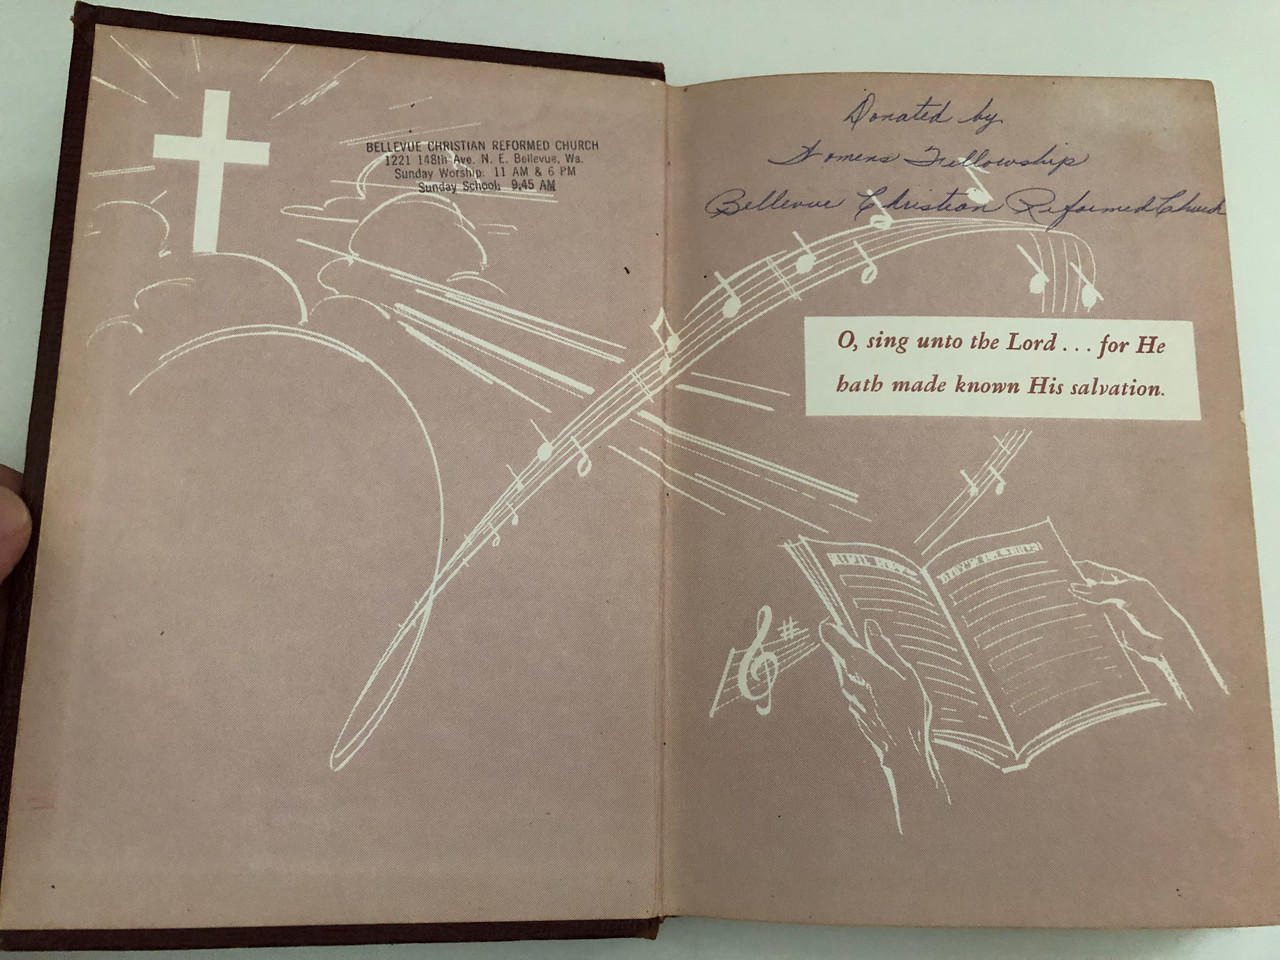 BELLEVUE CHRISTIAN REFORMED CHURCH
1221 148th Ave. N. E. Bellevue, Wa.
Sunday Worship: 11 AM & 6 PM
Sunday School: 9:45 AM
Donated by
Womens Fellowship
Bellevue Christian Reformed Church
O, sing unto the Lord . . . for He
hath made known His salvation.